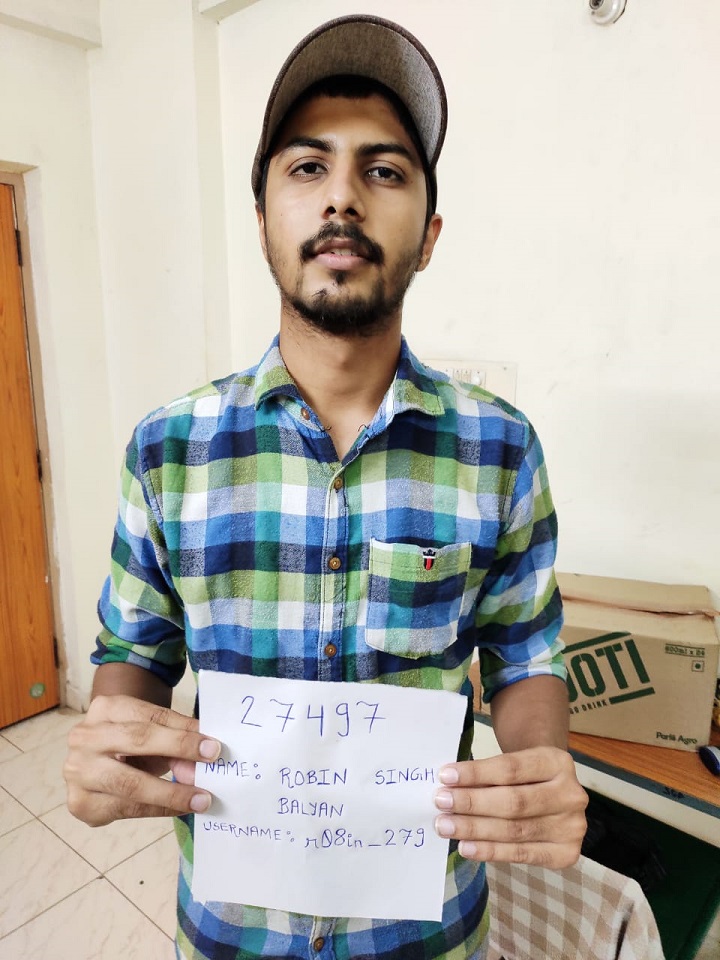 27497
NAME: ROBIN SINGH
BALYAN
USERNAME: r08in_279
600ml x 24
Parle Agro